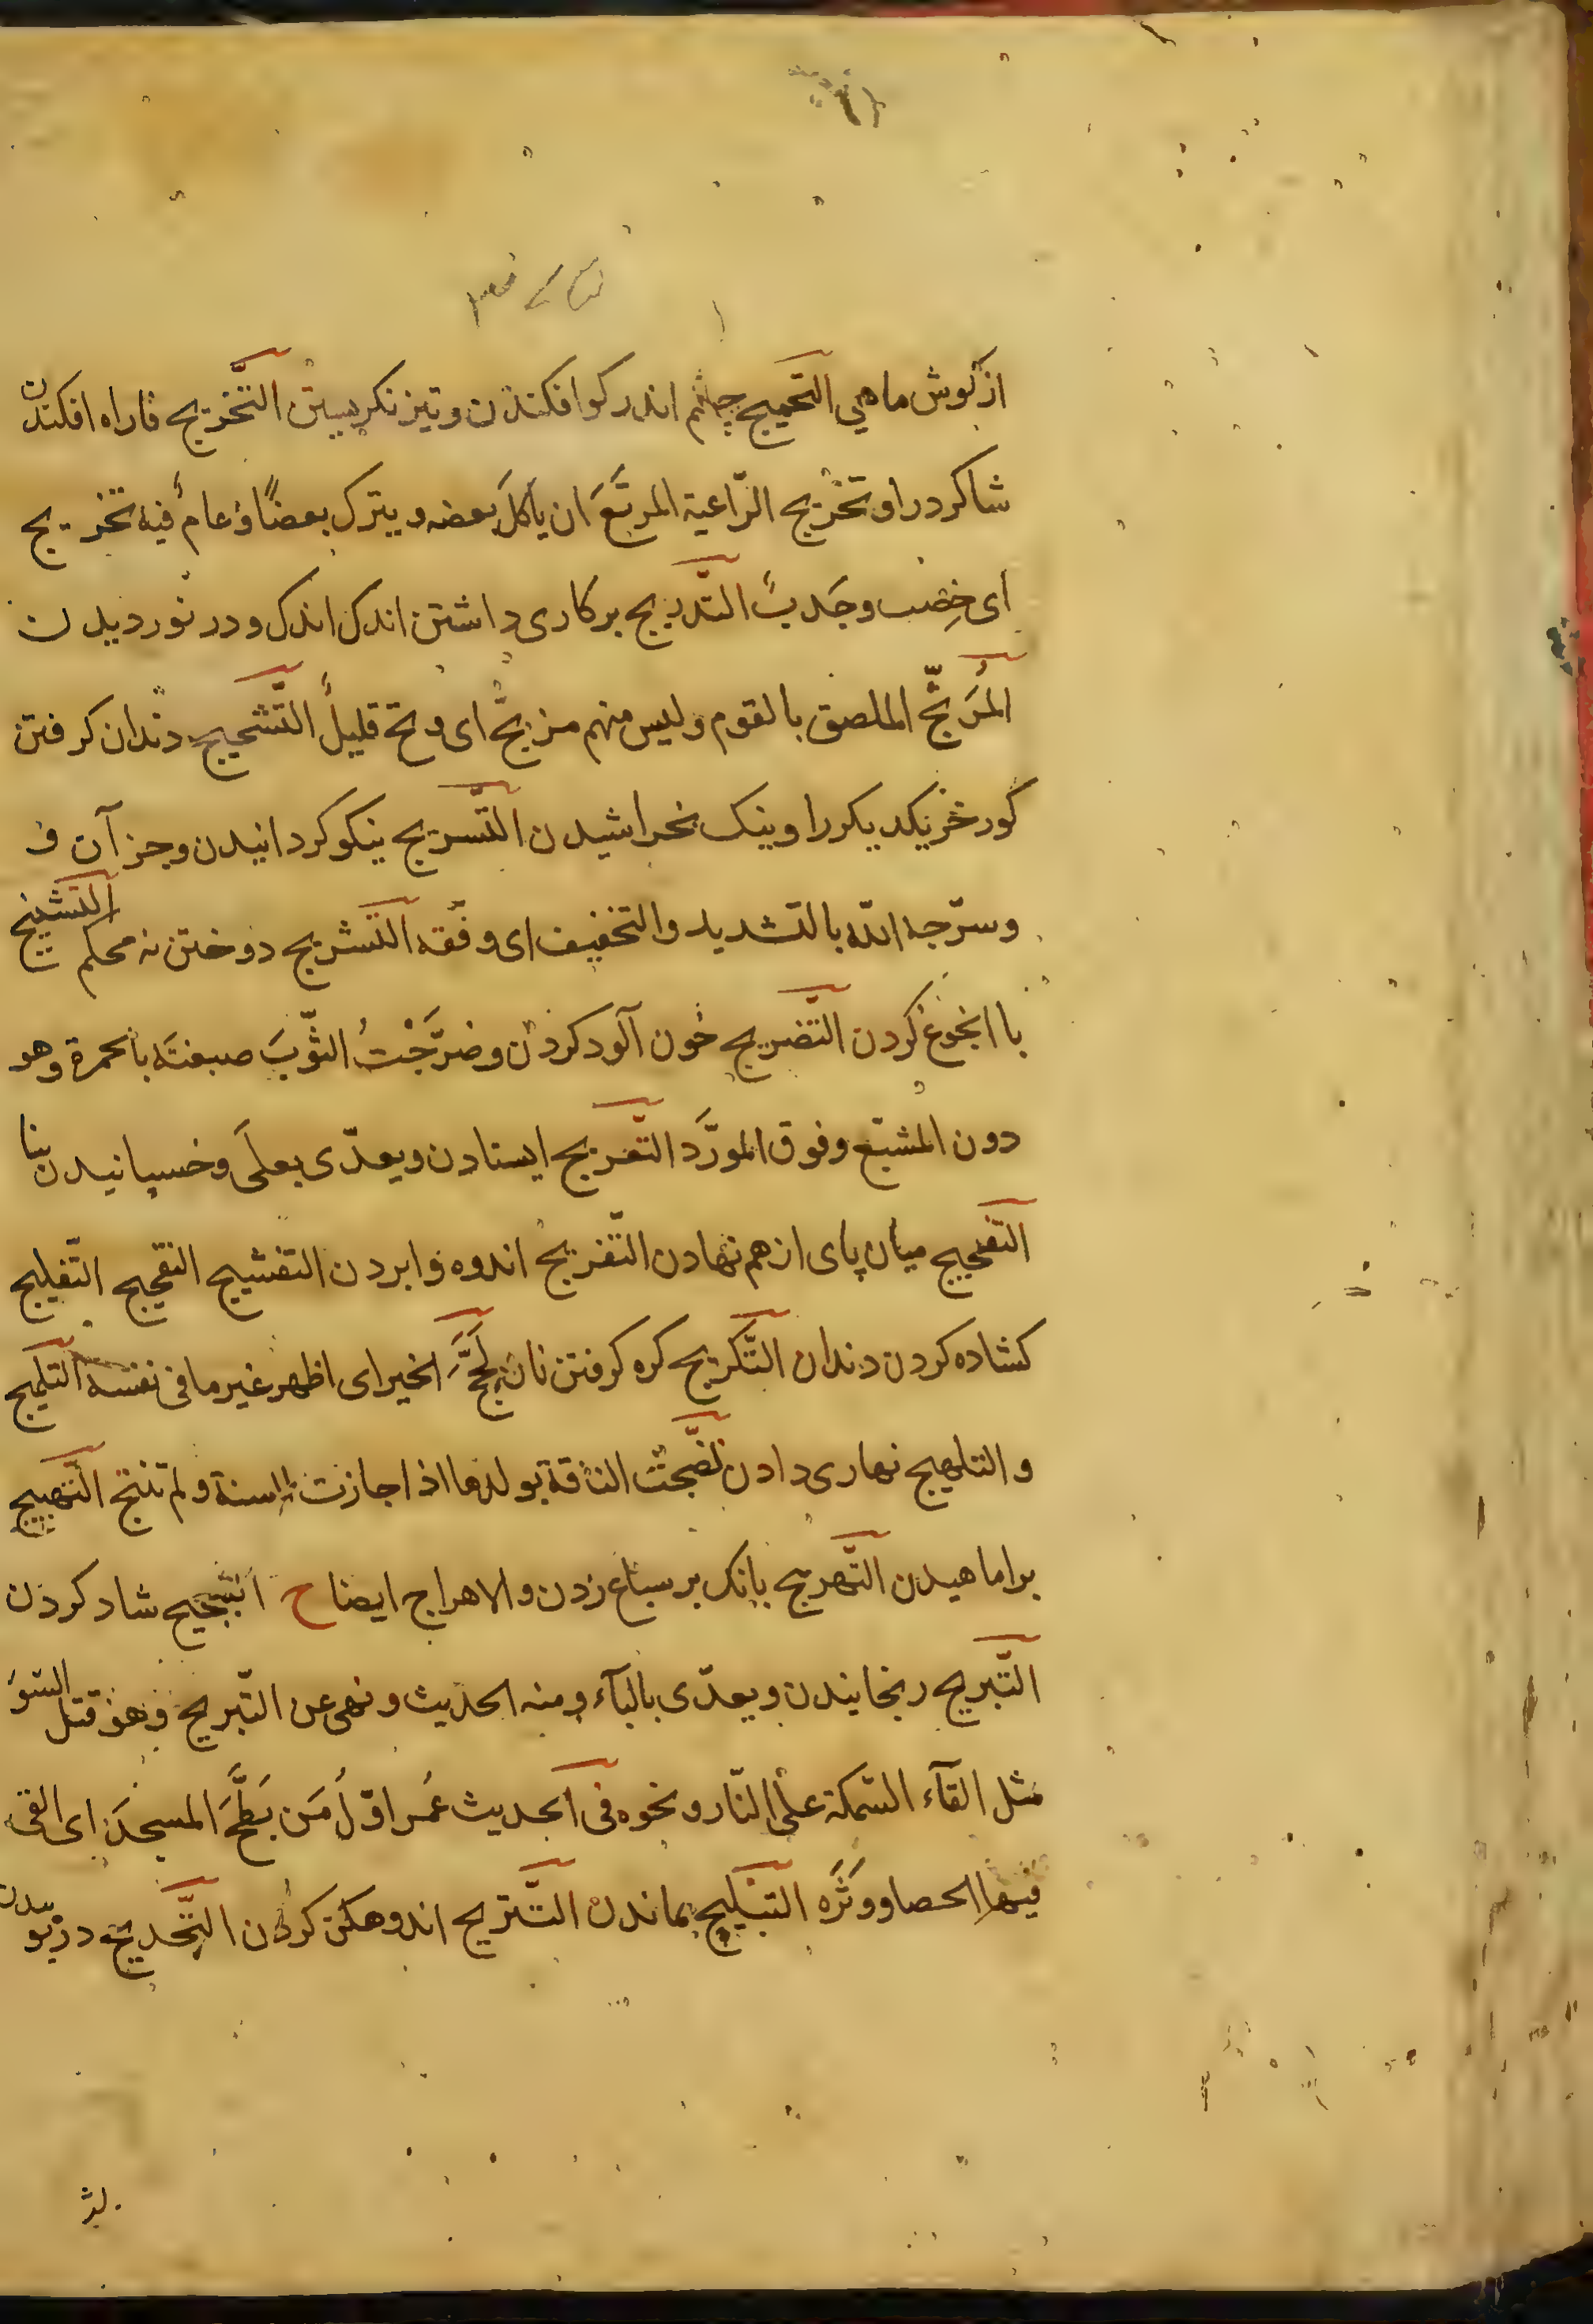 از کوش ماهي التحميج چشم اندر کوا فکندن وتيز نکريستن التّخريج فاراه افکندن
شاکرد را وتخْريج الرّاعية المرتَعَ ان ياکلَ بعضه ويترک بعضًا وعامٌ فيه تخريج
ای خِصْب وجَدبٌ التّدريج برکاری داشتن اندک اندک ودر نورديدن
المُزَلّج الملصق بالقوم وليس منهم مزلّج ای وتح قليلٌ التّشحيج دندان کرفتن
کورخر يکديکر را ونيک بخراشيدن التّسريج نيکو کردانيدن وجز آن ف
وسرّجه الله بالتشديد والتخفيف ای وفّقه التّشريج دوختن نه محکم التشنيج
با انجوغ کردن التّضريج خون آلود کردن وضرَّجْتُ الثّوبَ صبغته بالحمرة وهو
دون المشبَع وفوق المورَّد التّعريج ايستادن ويعدّی بعلَی وخسپانيدن بنا
التّفحيج ميان پای از هم نهادن التّفريج اندوه وابردن التفشيج التفجيج التّفليج
کشاده کردن دندان التّکريج کره کرفتن نان لَجَّ الخير ای اظهر غير ما فی نفسه التلميج
والتلهيج نهاری دادن نضّجت النّاقة بولدها اذا جازت السنة ولم تنتج التّهييج
براماهيدن التّهريج بانک بر سباع زدن والاهراج ايضا ح التبجيح شاد کردن
التّبريح رنجانيدن ويعدّی بالبآء ومنه الحديث ونهی عن التّبريح وهو قتل السّوء
مثل القآء السّمکة علی النّار ونحوه فی الحديث عُمر اوّلُ مَن بَطَّحَ المسجدَ ای القی
فيها الحصا ووثَّره التبليح بماندن التّتريح اندوهکن کردن التّحديج